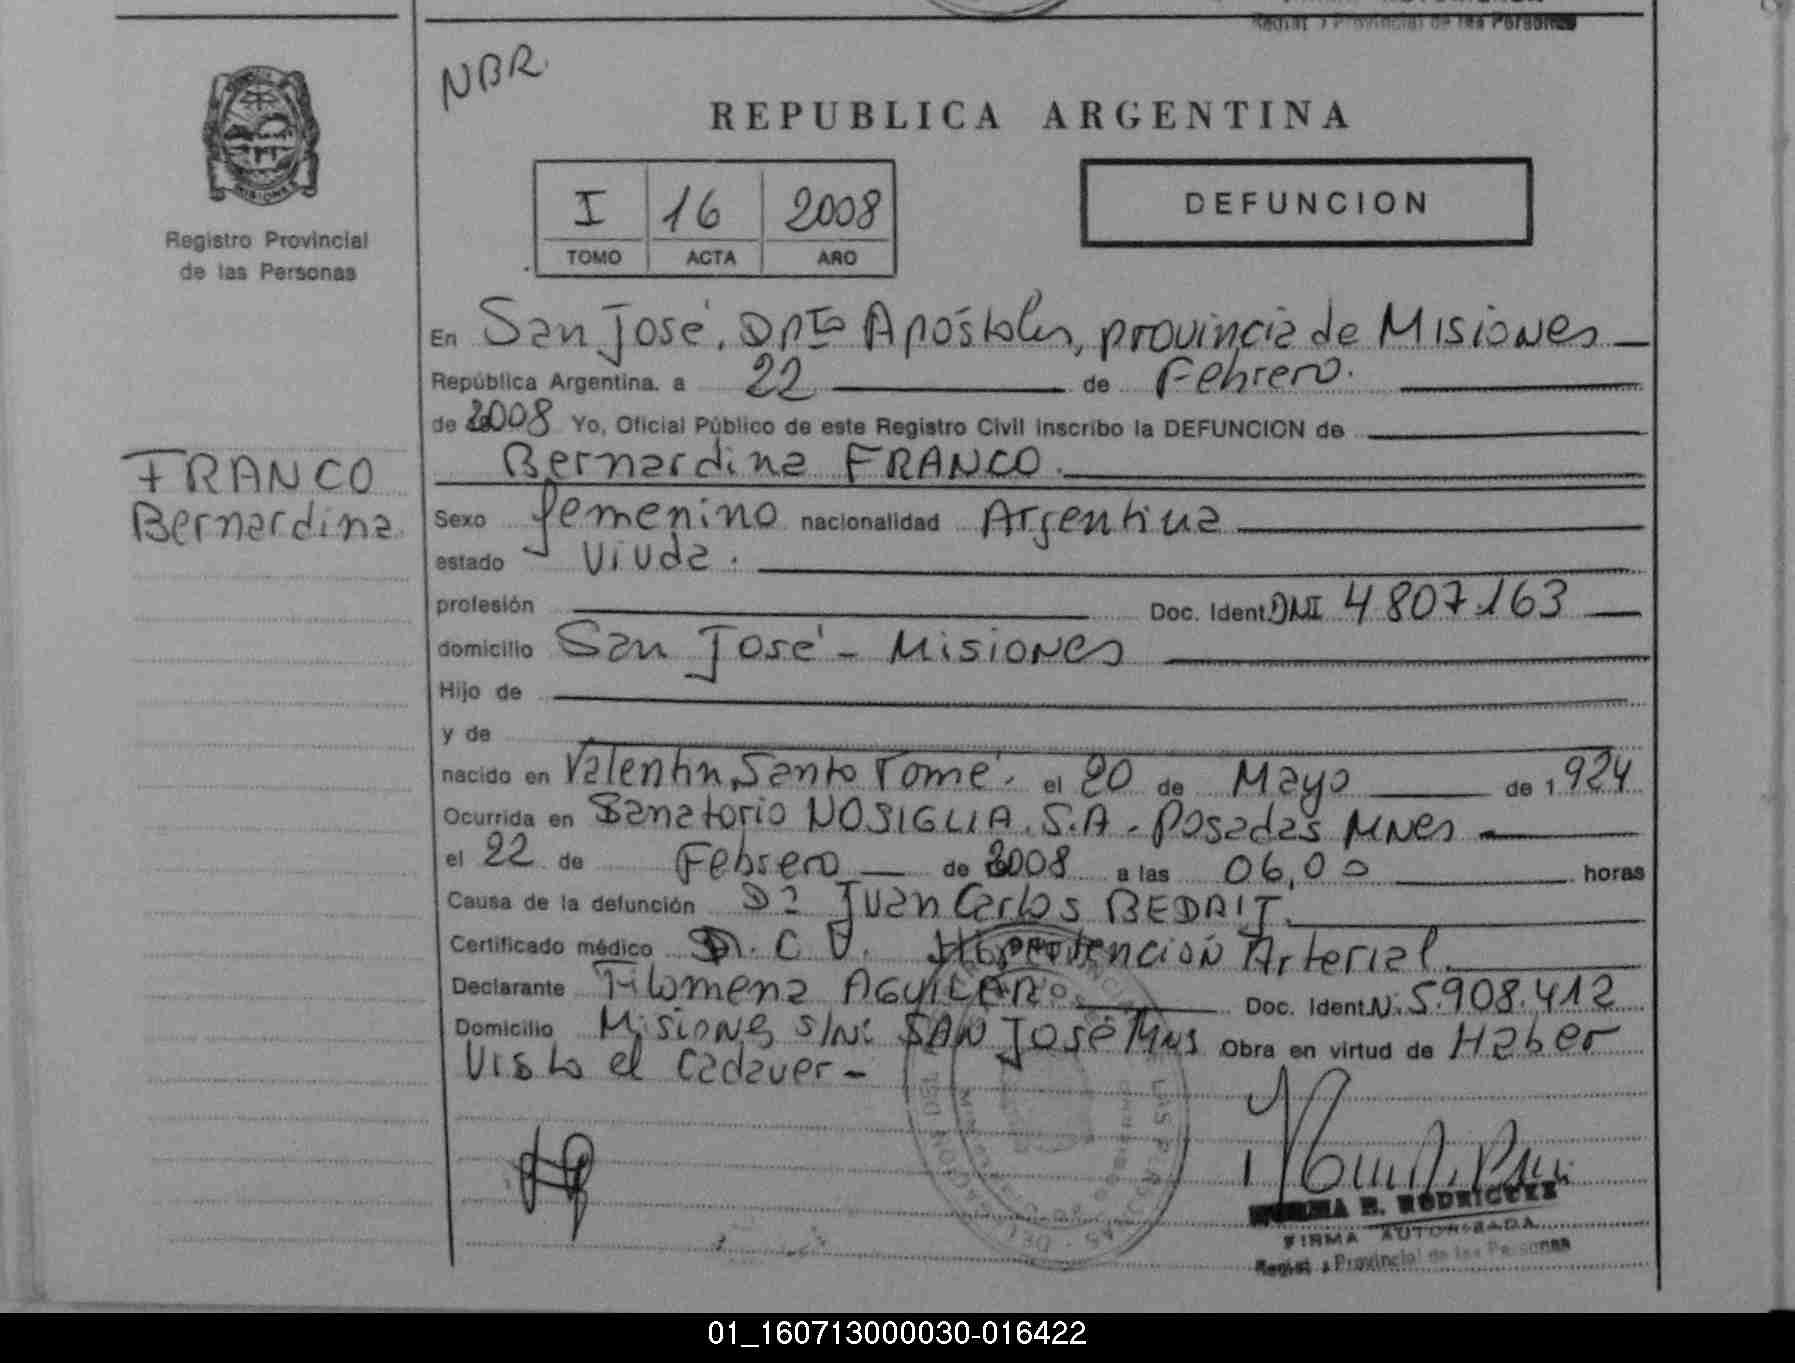 Registro Provincial de las Personas
NBR.
REPUBLICA ARGENTINA
MISIONES
Registro Provincial
de las Personas
I 16 2008
TOMO ACTA AÑO
DEFUNCION
En San José, Dpto Apóstoles, provincia de Misiones
República Argentina. a 22 de Febrero.
de 2008 Yo, Oficial Público de este Registro Civil inscribo la DEFUNCION de
Bernardina FRANCO.
FRANCO
Bernardina
Sexo femenino nacionalidad Argentina
estado Viuda.
profesión Doc. Ident. DNI 4.807.163
domicilio San José - Misiones
Hijo de
y de
nacido en Valentin, Santo Tomé. el 20 de Mayo de 1.924
Ocurrida en Sanatorio NOSIGLIA. S.A. Posadas Mnes
el 22 de Febrero de 2008 a las 06,00 horas
Causa de la defunción Dr Juan Carlos BEDRIT.
Certificado médico D.C.V. Hipertención Arterial.
Declarante Filomena AGUILAR Doc. Ident. Nº 5.908.412
Domicilio Misiones s/nº SAN José Mns Obra en virtud de Haber
Visto el Cadaver -
NORMA B. RODRIGUEZ
FIRMA AUTORIZADA
Regist Provincial de las Personas
01_160713000030-016422